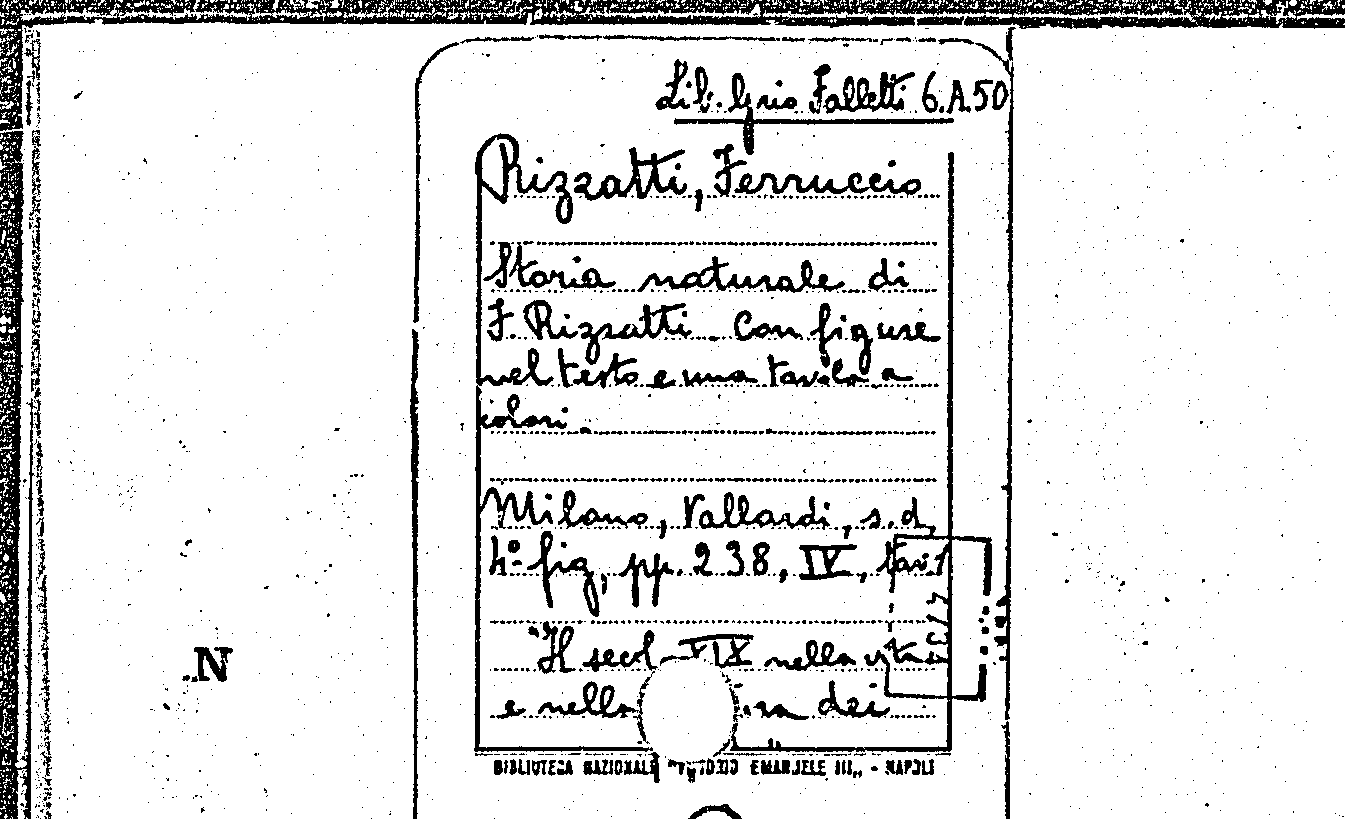 Lib. Grio Falletti 6.A.50
Rizzatti, Ferruccio
Storia naturale di
F. Rizzatti. Con figure
nel testo e una tavola a
colori.
Milano, Vallardi, s.d,
4º fig, pp. 238, IV, tav. 1
"Il secol XIX nella vita
e nella dei
N
BIBLIOTECA NAZIONALE "VITTORIO EMANUELE III„ - NAPOLI